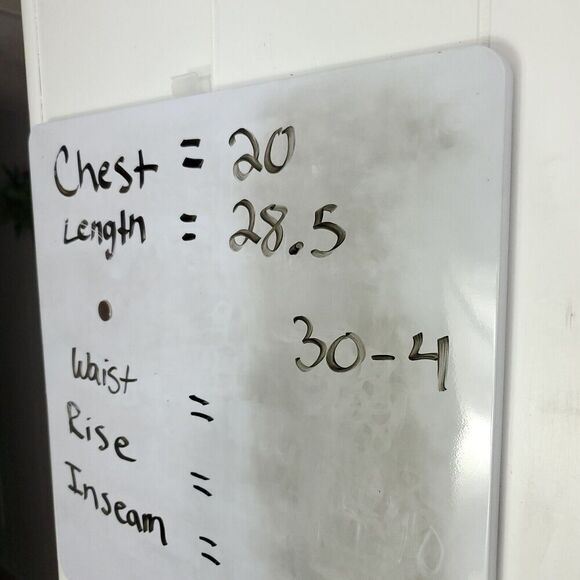 Chest = 20
Length = 28.5
30-4
Waist =
Rise =
Inseam =